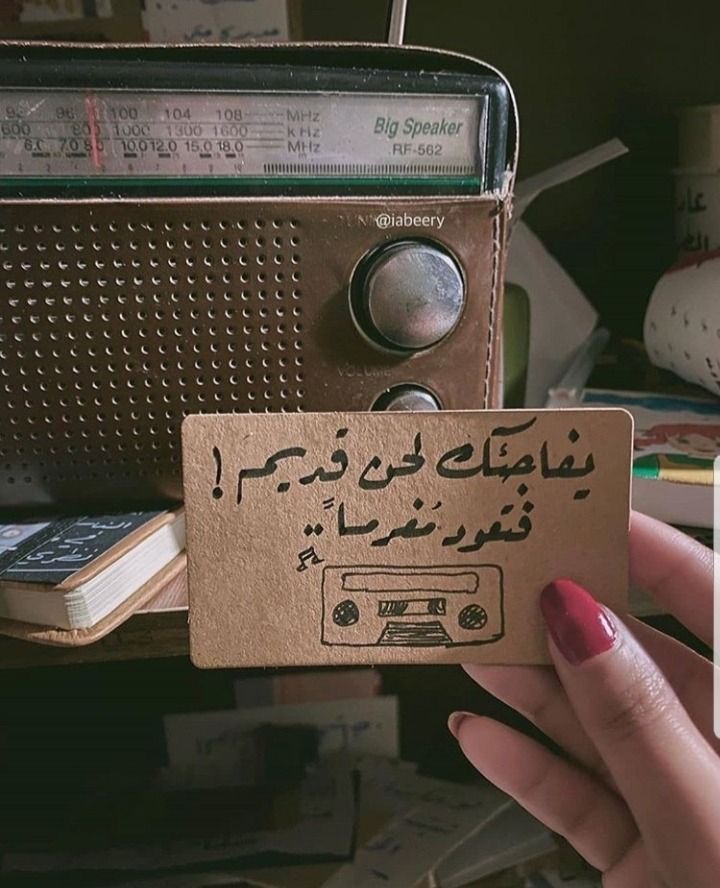 92 96 100 104 108 MHz
600 800 1000 1300 1600 kHz
6.0 7.0 8.0 10.0 12.0 15.0 18.0 MHz
Big Speaker
RF-562
@iabeery
VOLUME
يفاجئك لحن قديم !
فتعود مُغرماً ..